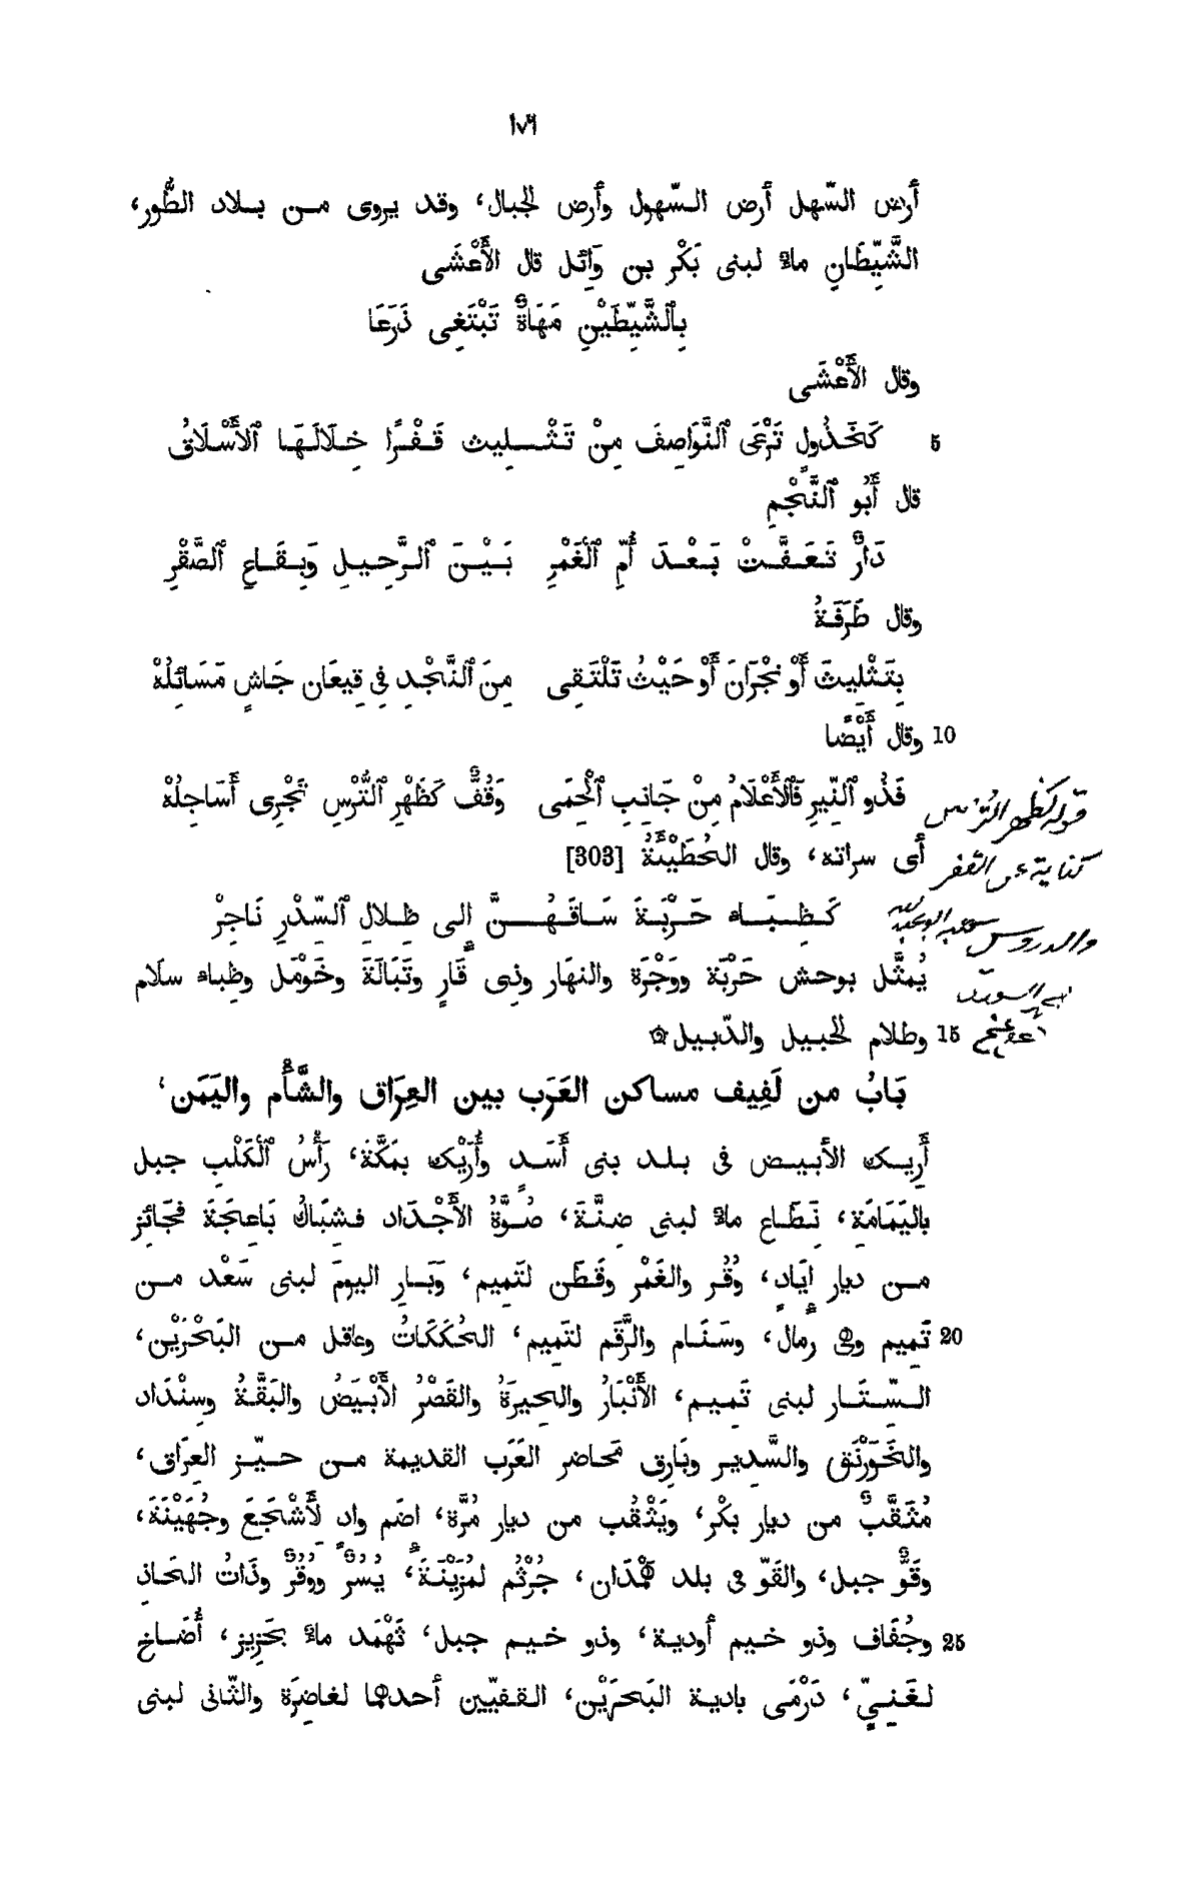 ١٧٦
أرض السّهل أرض السّهول وأرض الجبال، وقد يروى من بلاد الطُّور،
الشَّيِّطَانِ ماءٌ لبنى بَكْر بن وَآئِل قال الأَعْشَى
بِٱلشَّيِّطَيْنِ مَهَاةٌ تَبْتَغِى ذَرَعَا
وقال الأَعْشَى
5 كَخَذُولٍ تَرْعَى ٱلنَّوَاصِفَ مِنْ تَثْلِيثَ قَفْرًا خِلَالَهَا ٱلأَسْلَاقُ
قال أَبُو ٱلنَّجْمِ
دَارٌ تَعَفَّتْ بَعْدَ أُمِّ ٱلغَمْرِ بَيْنَ ٱلرَّحِيلِ وَبِقَاعِ ٱلصَّقْرِ
وقال طَرَفَةُ
بِتَثْلِيثَ أَوْ نَجْرَانَ أَوْ حَيْثُ تَلْتَقِى مِنَ ٱلنَّجْدِ فِى قِيعَانِ جَاشٍ مَسَائِلُهْ
10 وقال أَيْضًا
فَذُو ٱلنِّيرِ فَٱلأَعْلَامُ مِنْ جَانِبِ ٱلْحِمَى وَقُفٌّ كَظَهْرِ ٱلتُّرْسِ تَجْرِى أَسَاجِلُهْ
قوله كظهر الترس
أى سراته، وقال الحُطَيْئَةُ [303]
كناية عن القفر
كَظِبَاء حَرْبَةَ سَاقَهُنَّ إلى ظِلالِ ٱلسِّدْرِ نَاجِرْ
والدروس
يُمثَّل بوحش حَرْبَة ووَجْرَة والنهَار وذى قَارٍ وتَبَالَةَ وخَوْمَل وظِباء سلَام
15 وظلام الخبيل والدّبيل ۞
بَابُ من لَفِيف مساكن العَرَب بين العِرَاق والشَّأْم واليَمَن،
أَرِيك الأبيض فى بلد بنى أَسَدٍ وأُرَيْك بمَكَّةَ، رَأْسُ ٱلْكَلْبِ جبل
باليَمَامَةِ، نَطَاعِ ماءٌ لبنى ضِنَّةَ، صُوَّةُ الأَجْدَاد فشِبَاكُ بَاعِجَةَ فجَائِز
من ديار إِيَادٍ، وُقُر والغَمْر وقَطَن لتَمِيم، وَبَارِ اليومَ لبنى سَعْد من
20 تَمِيم وهى رِمال، وسَنَام والرَّقَم لتَمِيم، الحُكَكَاتُ وعاقل من البَحْرَيْن،
السِّتَار لبنى تَمِيم، الأَنْبَارُ والحِيرَةُ والقَصْرُ الأَبْيَضُ والبَقَّةُ وسِنْدَاد
والخَوَرْنَق والسَّدِير وبَارِق مَحاضر العَرَب القديمة من حيّز العِرَاق،
مُثَقَّبٌ من ديار بكْر، ويَثْقُب من ديار مُرَّة، إضَم وادٍ لأَشْجَعَ وجُهَيْنَةَ،
وقَوٌّ جبل، والقَوّ فى بلد هَمْدَان، جُرْثُم لمُزَيْنَةَ، يُسُرٌ ووُقُرٌ وذَاتُ الحَاذِ
25 وجُفَاف وذو خيم أودية، وذو خيم جبل، ثَهْمَد ماءٌ بحَزِيز، أُضَاخ
لغَنِىٍّ، دَرْمَى بادية البَحرَيْن، القفيّين أحدهما لغاضِرَة والثّانى لبنى